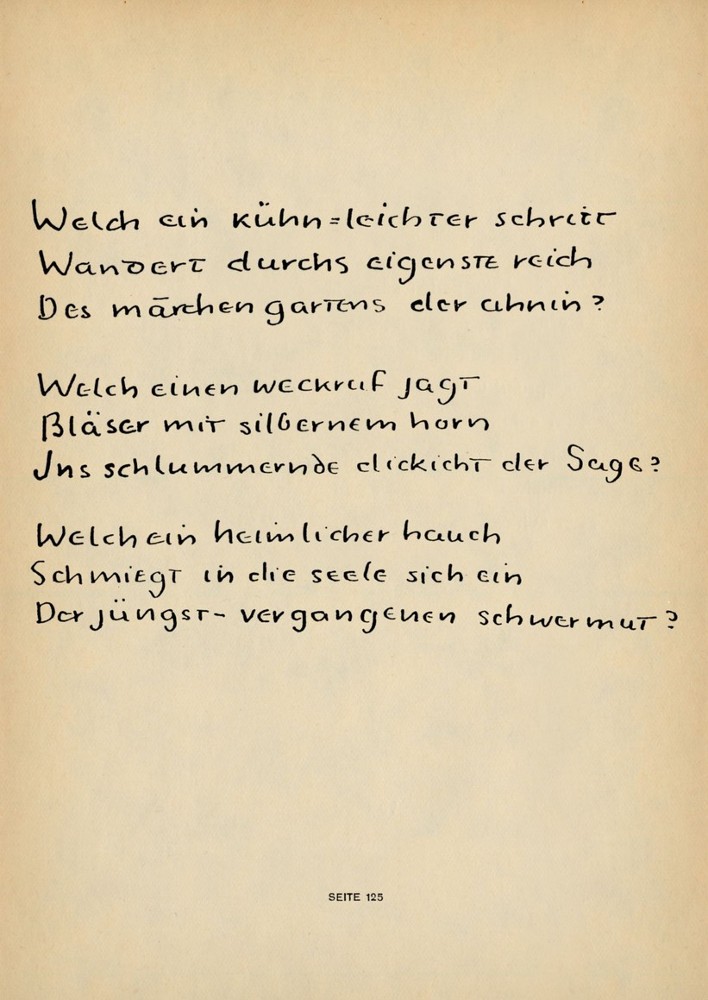 Welch ein kühn=leichter schritt
Wandert durchs eigenste reich
Des märchengartens der ahnin?
Welch einen weckruf jagt
Bläser mit silbernem horn
Ins schlummernde dickicht der Sage?
Welch ein heimlicher hauch
Schmiegt in die seele sich ein
Der jüngst- vergangenen schwermut?
SEITE 125